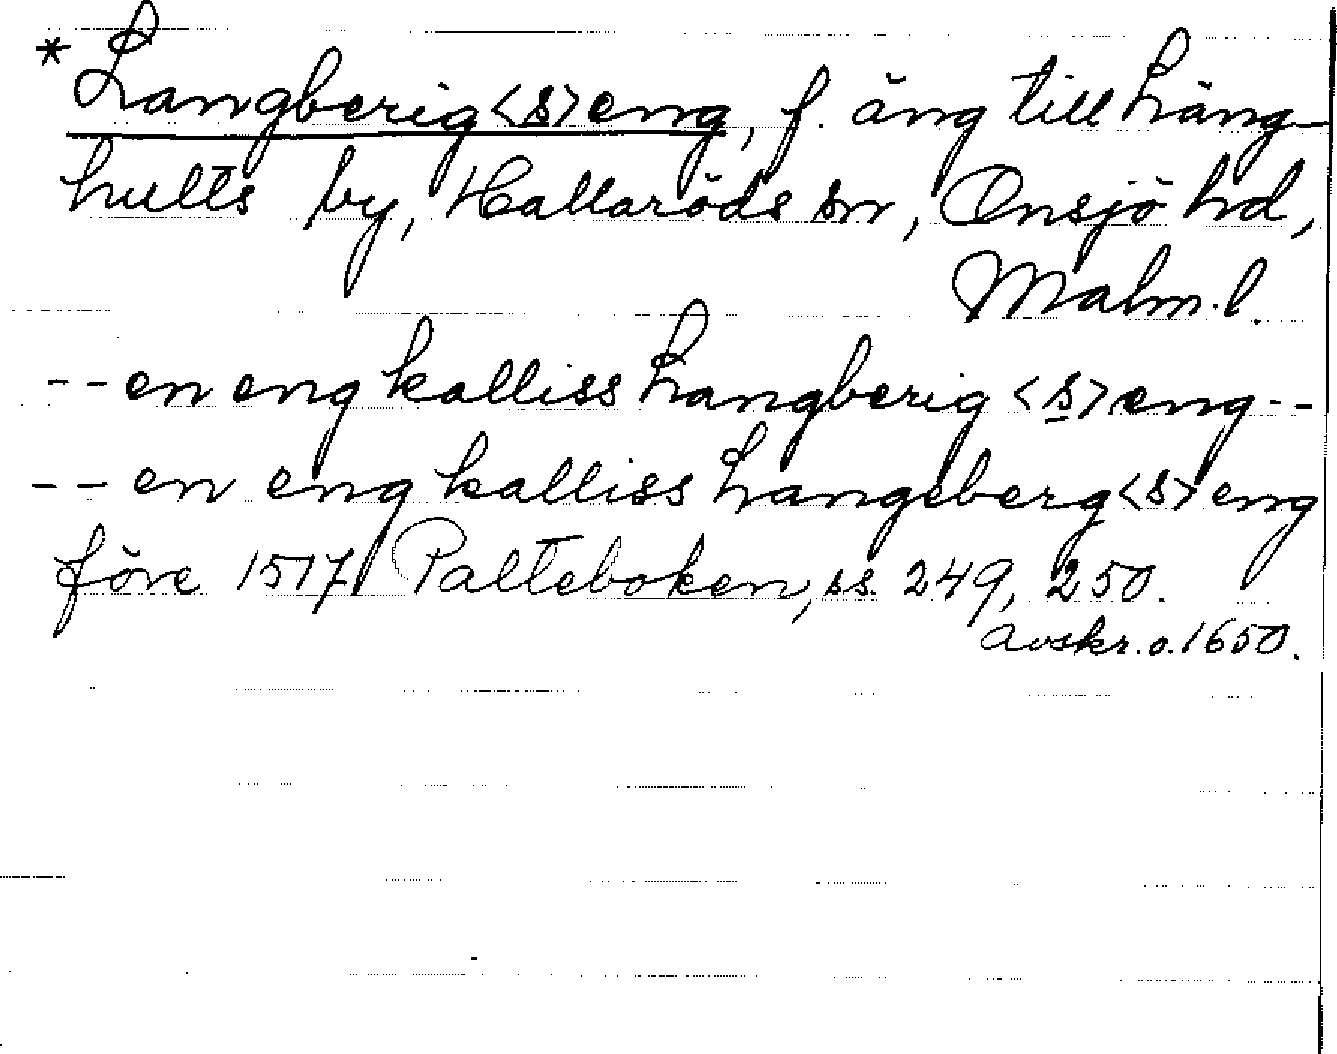 * Langberig<s>eng, f. äng till Läng-
hults by, Hallaröds sn, Onsjö hd,
Malm. l.
-- en eng kalliss Langberig <s> eng --
-- en eng kalliss Langeberg <s> eng
före 1517 Palteboken, ss. 249, 250.
avskr. o. 1650.